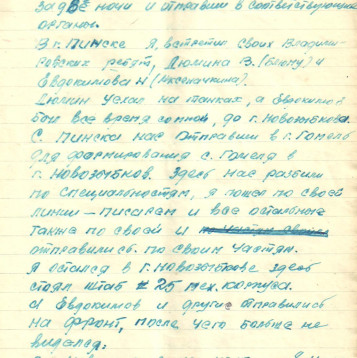 за д 8е ночи и отправили в соответствующии
органы.
В г. Пинске я, встретил своих Владими-
ровских ребят, Дюмина В. и
Евдокимова Н
Дюмин уехал на танках, а Евдокимов
был все время со мной, до г. Новозыбкова.
С. Пинска нас отправили в г. Гомель
для формирования с. Гомеля в
г. Новозыбков. Здесь нас разбили
по специальностям, я пошел по своей
линии – писарем и все остальные
также по своей и
отправились по своим частям.
Я остался в г. Новозыбкове здесь
стоял штаб # 25 тех. корпуса.
а Евдокимов и другие отправились
на фронт, после чего больше не
видел